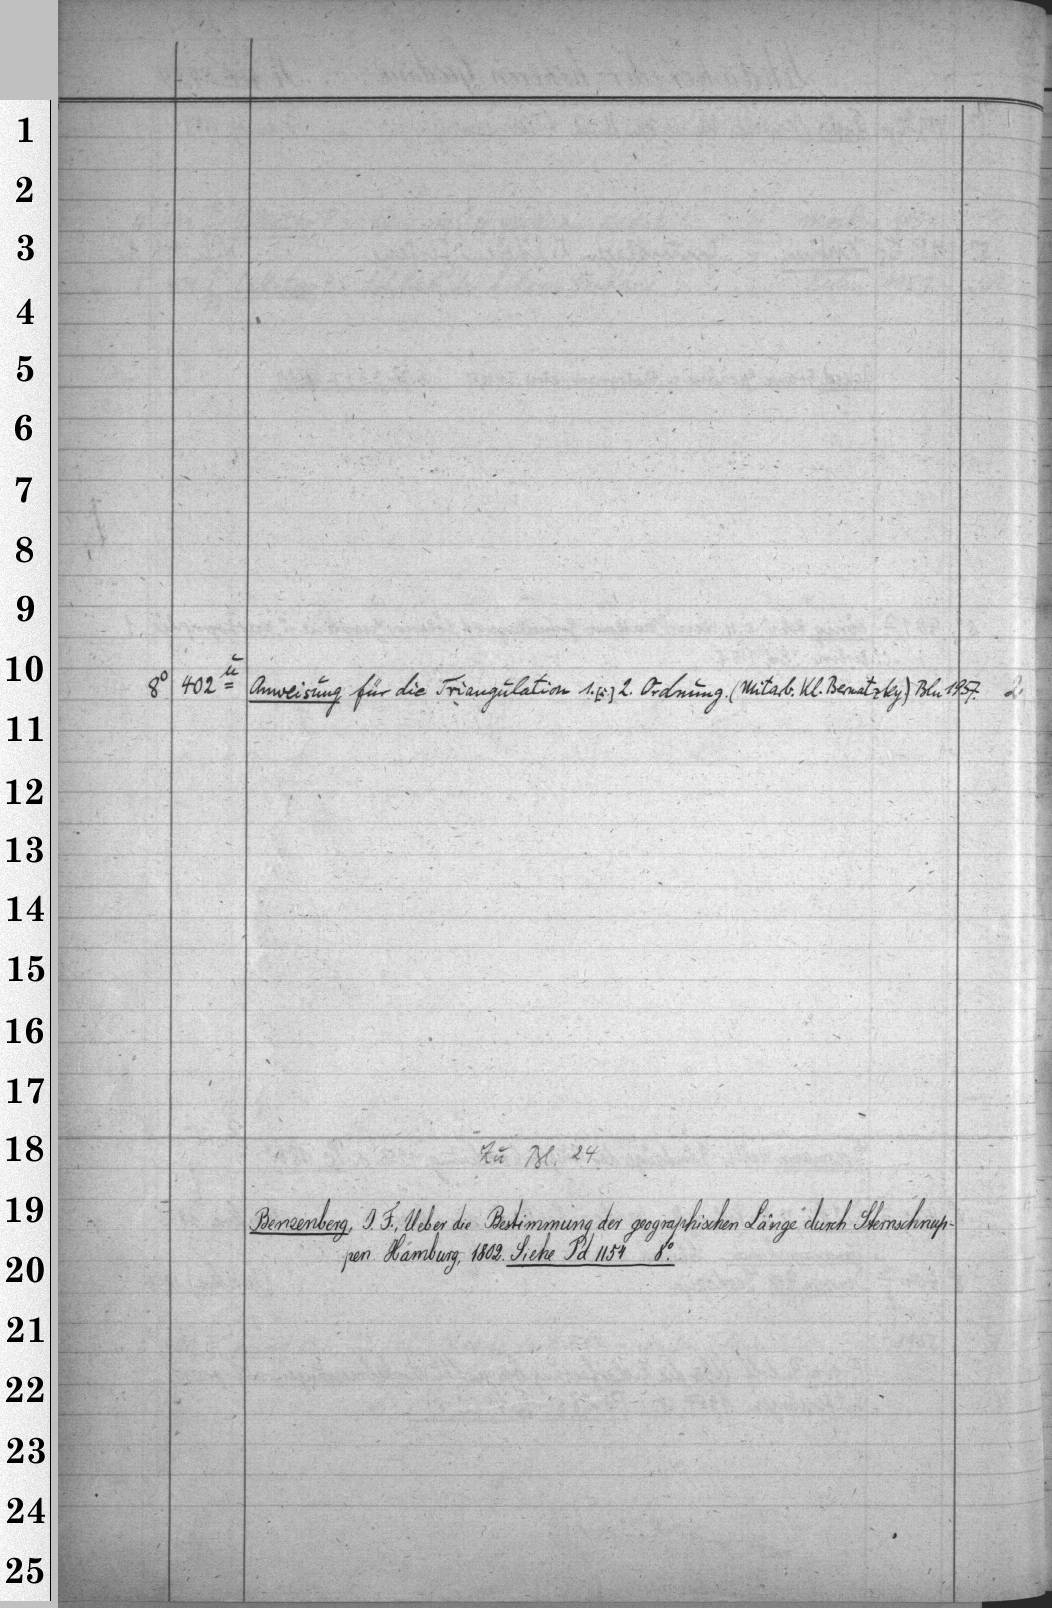 1
2
3
4
5
6
7
8
9
10
8° 402 ü Anweisung für die Triangulation 1. [:] 2. Ordnung. (Mitarb. Kl. Bernatzky) Bln 1957. 2
11
12
13
14
15
16
17
18
Zu Bl. 24
19
Benzenberg, J. F., Ueber die Bestimmung der geographischen Länge durch Sternschnup-
pen. Hamburg, 1802. Siehe Pd 1154 8°.
20
21
22
23
24
25